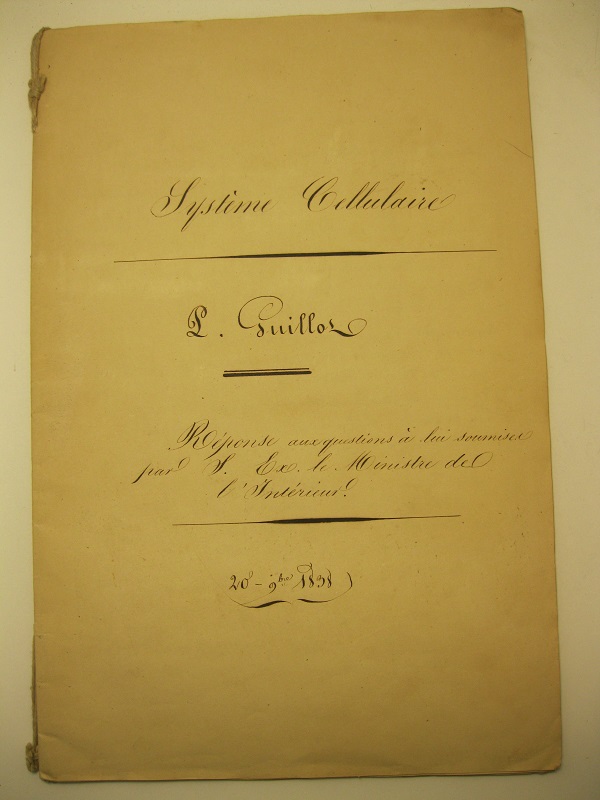 Système Cellulaire
P. Guillot
Réponse aux questions à lui soumises
par S. Ex. le Ministre de
l'Intérieur.
20 - 9bre 1838